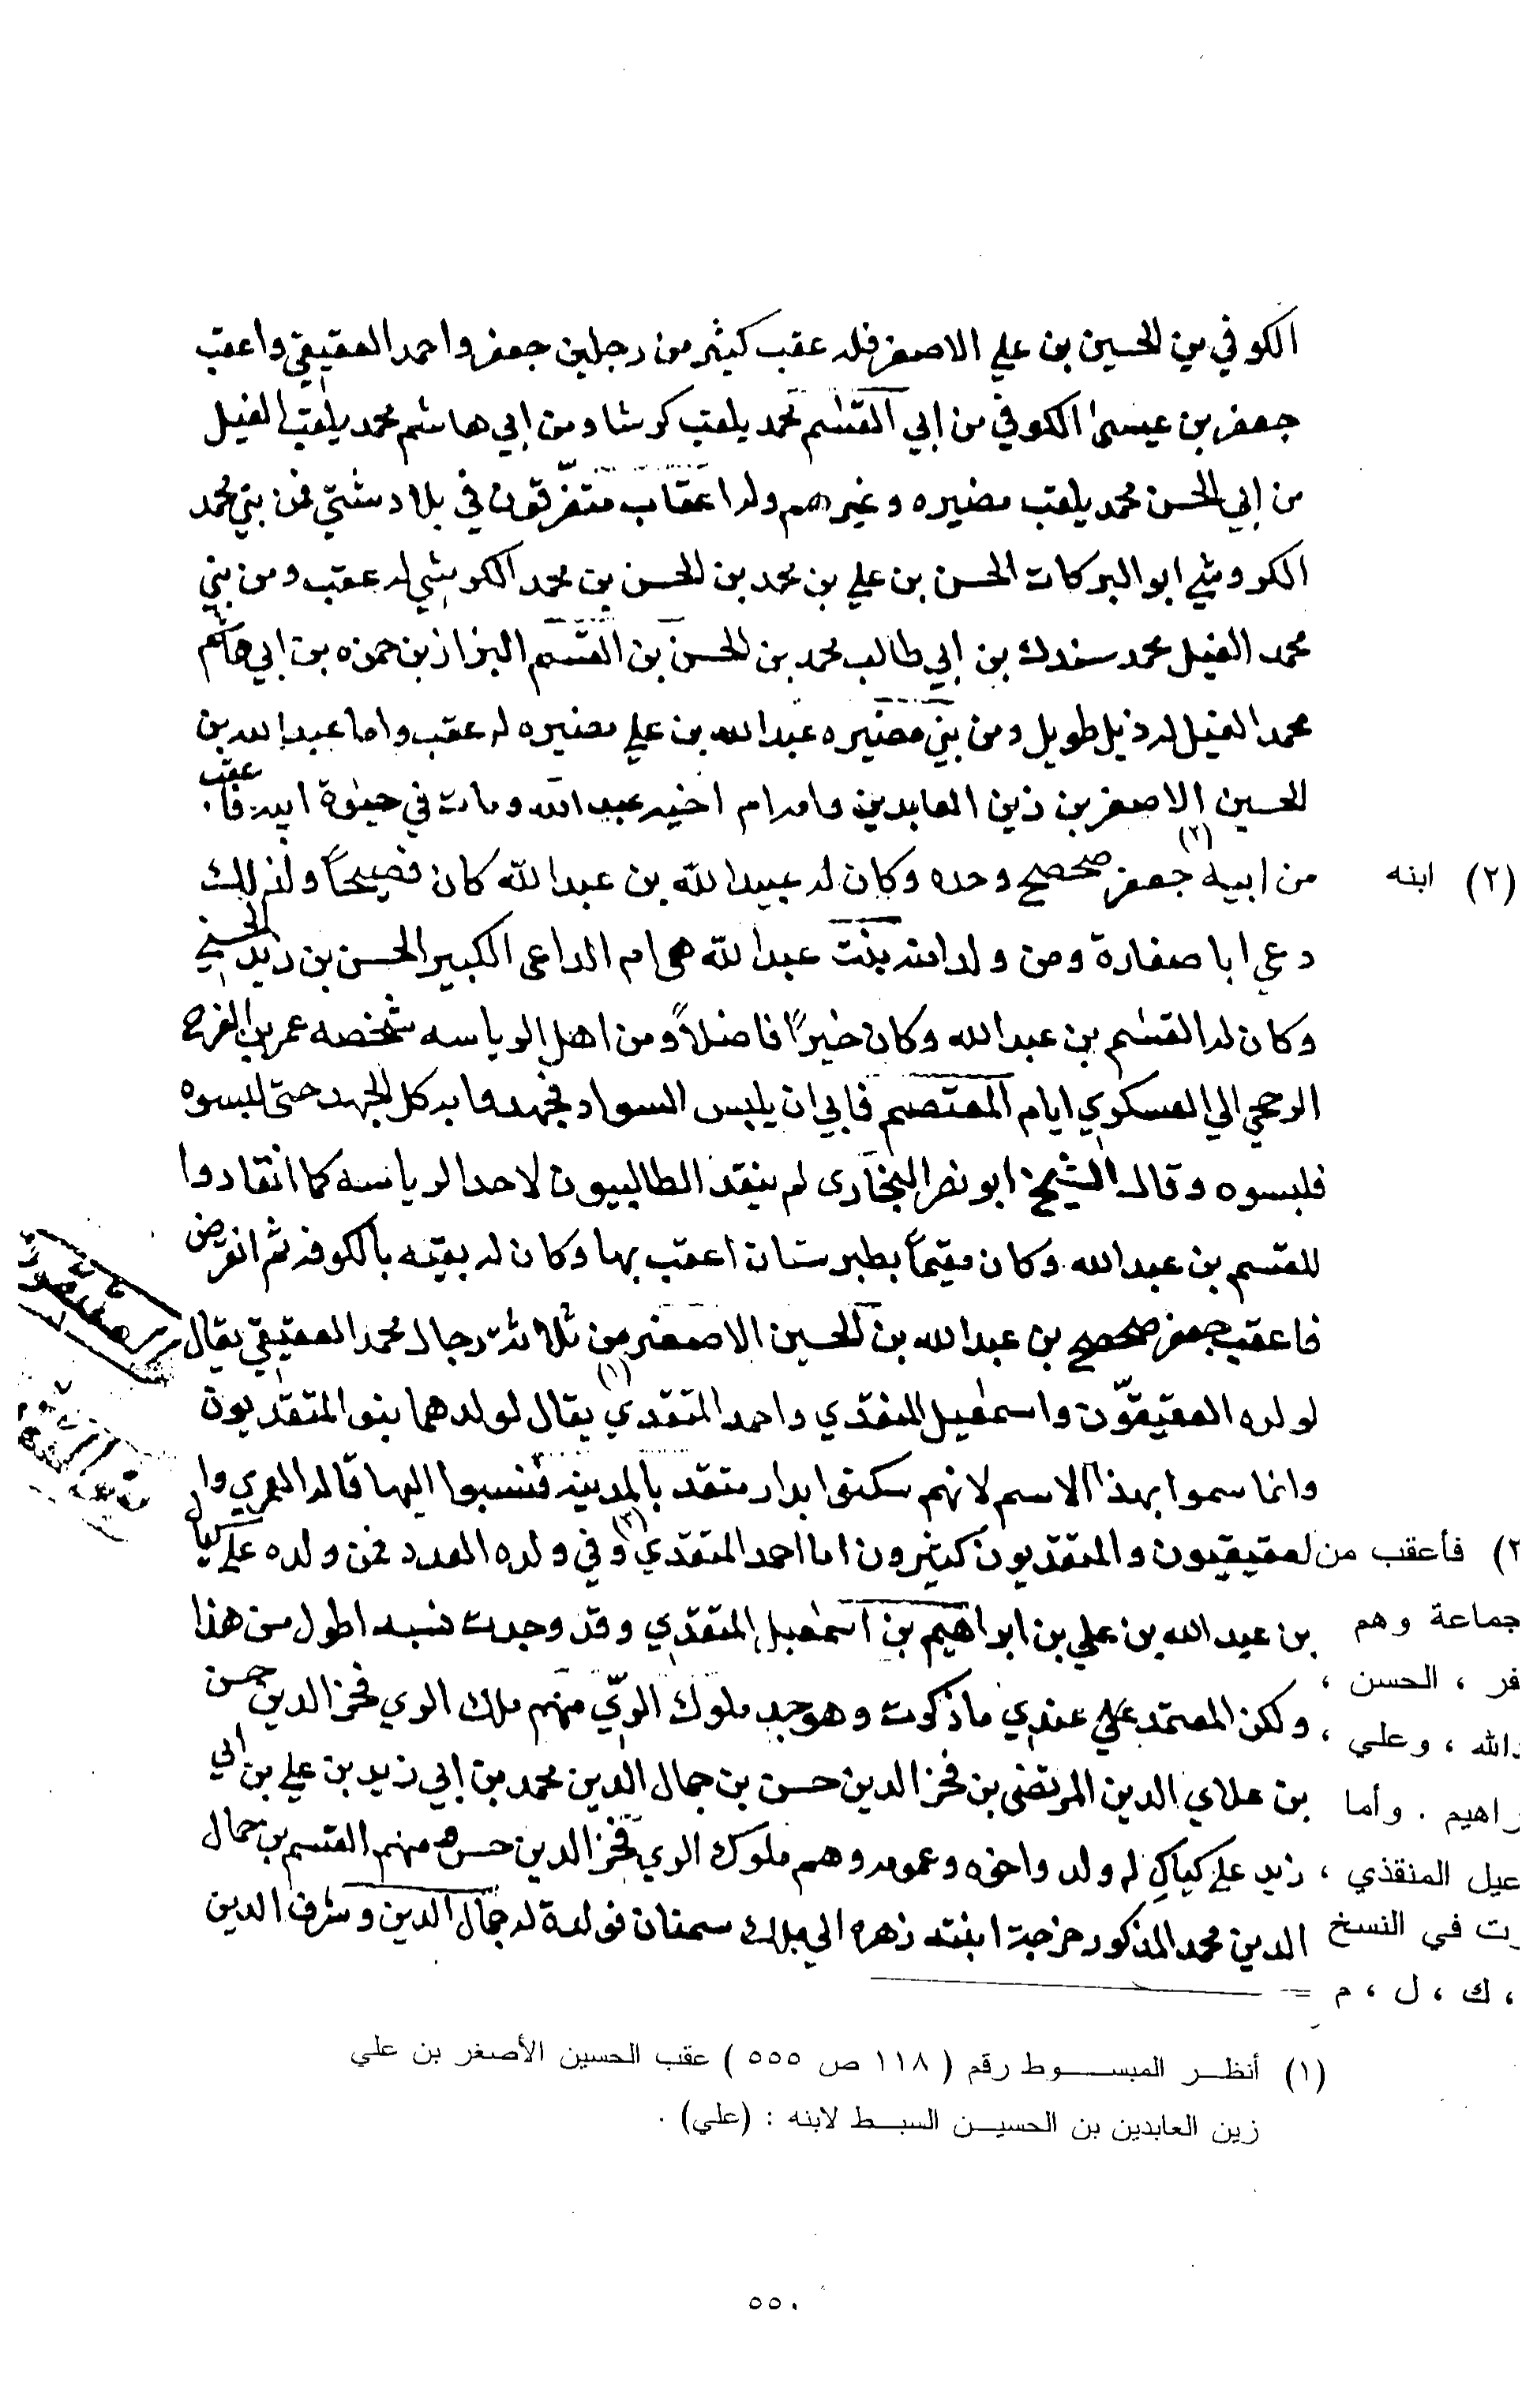 الكوفي بن الحسين بن علي الاصغر فله عقب كثير من رجلين جعفر واحمد العقيقي واعقب
جعفر بن عيسى الكوفي من ابي القسم محمد يلقب كرشا ومن ابي هاشم محمد يلقب الفيل
من ابي الحسن محمد يلقب مضيره وغيرهم وله اعقاب متفرقون في بلاد شتي فمن بني محمد
الكروشي ابو البركات الحسن بن علي بن محمد بن الحسن بن محمد الكوشي له عقب ومن بني
محمد الفيل محمد سندك بن ابي طالب محمد بن الحسن بن القسم البزاز بن حمزه بن ابي هاشم
محمد الفيل له ذيل طويل ومن بني مضيره عبد الله بن علي مضيره له عقب واما عبد الله بن
الحسين الاصغر بن زين العابدين وامه ام اخيه عبيد الله ومات في حيوة ابيه فاعقب
من ابيه (٢) جعفر صحصح وحده وكان له عبيد الله بن عبد الله كان فصيحاً ولذلك
دعي ابا صفارة ومن ولده امنه بنت عبد الله هى ام الداعى الكبير الحسن بن زيد الحسني
وكان له القسم بن عبد الله وكان خيراً فاضلاً ومن اهل الرياسه شخصه عمر بن الفرج
الرحجي الي العسكري ايام المعتصم فابي ان يلبس السواد فجهدوا به كل الجهد حتى لبسوه
فلبسوه وقال الشيخ ابو نصر البخارى لم ينقد الطالبيون لاحد الرياسه كما انقادوا
للقسم بن عبد الله وكان مقيماً بطبرستان اعقب بها وكان له بقيه بالكوفه ثم انقرض
فاعقب جعفر صحصح بن عبد الله بن الحسين الاصغر من ثلاثة رجال محمد العقيقي يقال
لولده العقيقون واسمعيل المنقذي واحمد المنقذي (١) يقال لولدهما بنو المنقذيون
وانما سموا بهذا الاسم لانهم سكنوا بدار منقد بالمدينه فنسبوا اليها قاله العمري وال
لعقيقيون والمنقذيون كثيرون اما احمد المنقذي (٣) وفي ولده العدد فمن ولده علي كياكي
بن عبد الله بن علي بن ابراهيم بن اسمعيل المنقذي وقد وجدت نسبه اطول من هذا
ولكن المعتمد علي عندي ما ذكرت وهو جد ملوك الري منهم ملك الري فخر الدين حسن
بن علاي الدين المرتضى بن فخر الدين حسن بن جمال الدين محمد بن ابي زيد بن علي بن ابي
زيد علي كياكي له ولد واخوه وعمومه وهم ملوك الري فخر الدين حسن ومنهم القسم بن جمال
الدين محمد المذكور خرجة ابنته زهره الي ملك سمنان فولدة له جمال الدين وشرف الدين
(٢) ابنه
٢) فأعقب من
جماعة وهم
فر ، الحسن ،
دالله ، وعلي ،
راهيم . وأما
عيل المنقذي ،
رت في النسخ
، ك ، ل ، م =
(١) أنظر المبسوط رقم ( ١١٨ ص ٥٥٥ ) عقب الحسين الأصغر بن علي
زين العابدين بن الحسين السبط لابنه : (علي) .
٥٥٠